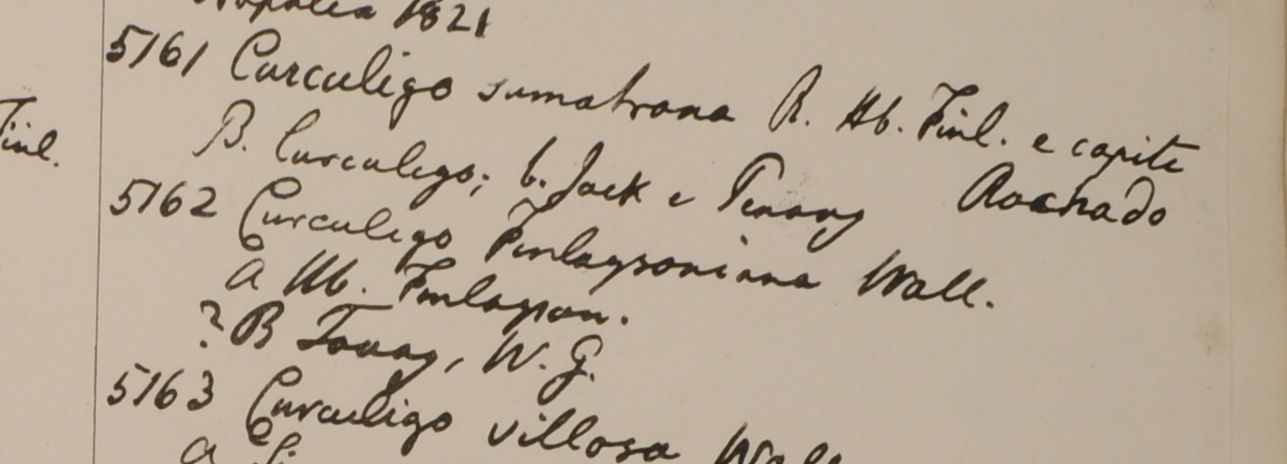 Napalia 1821
5161 Curculigo sumatrana R. Hb. Finl. e capite
Rachado
B. Curculigo; b. Jack e Penang
Finl.
5162 Curculigo Finlaysoniana Wall.
a Hb. Finlayson.
? B Tavoy, W. G.
5163 Curculigo villosa Wall
a